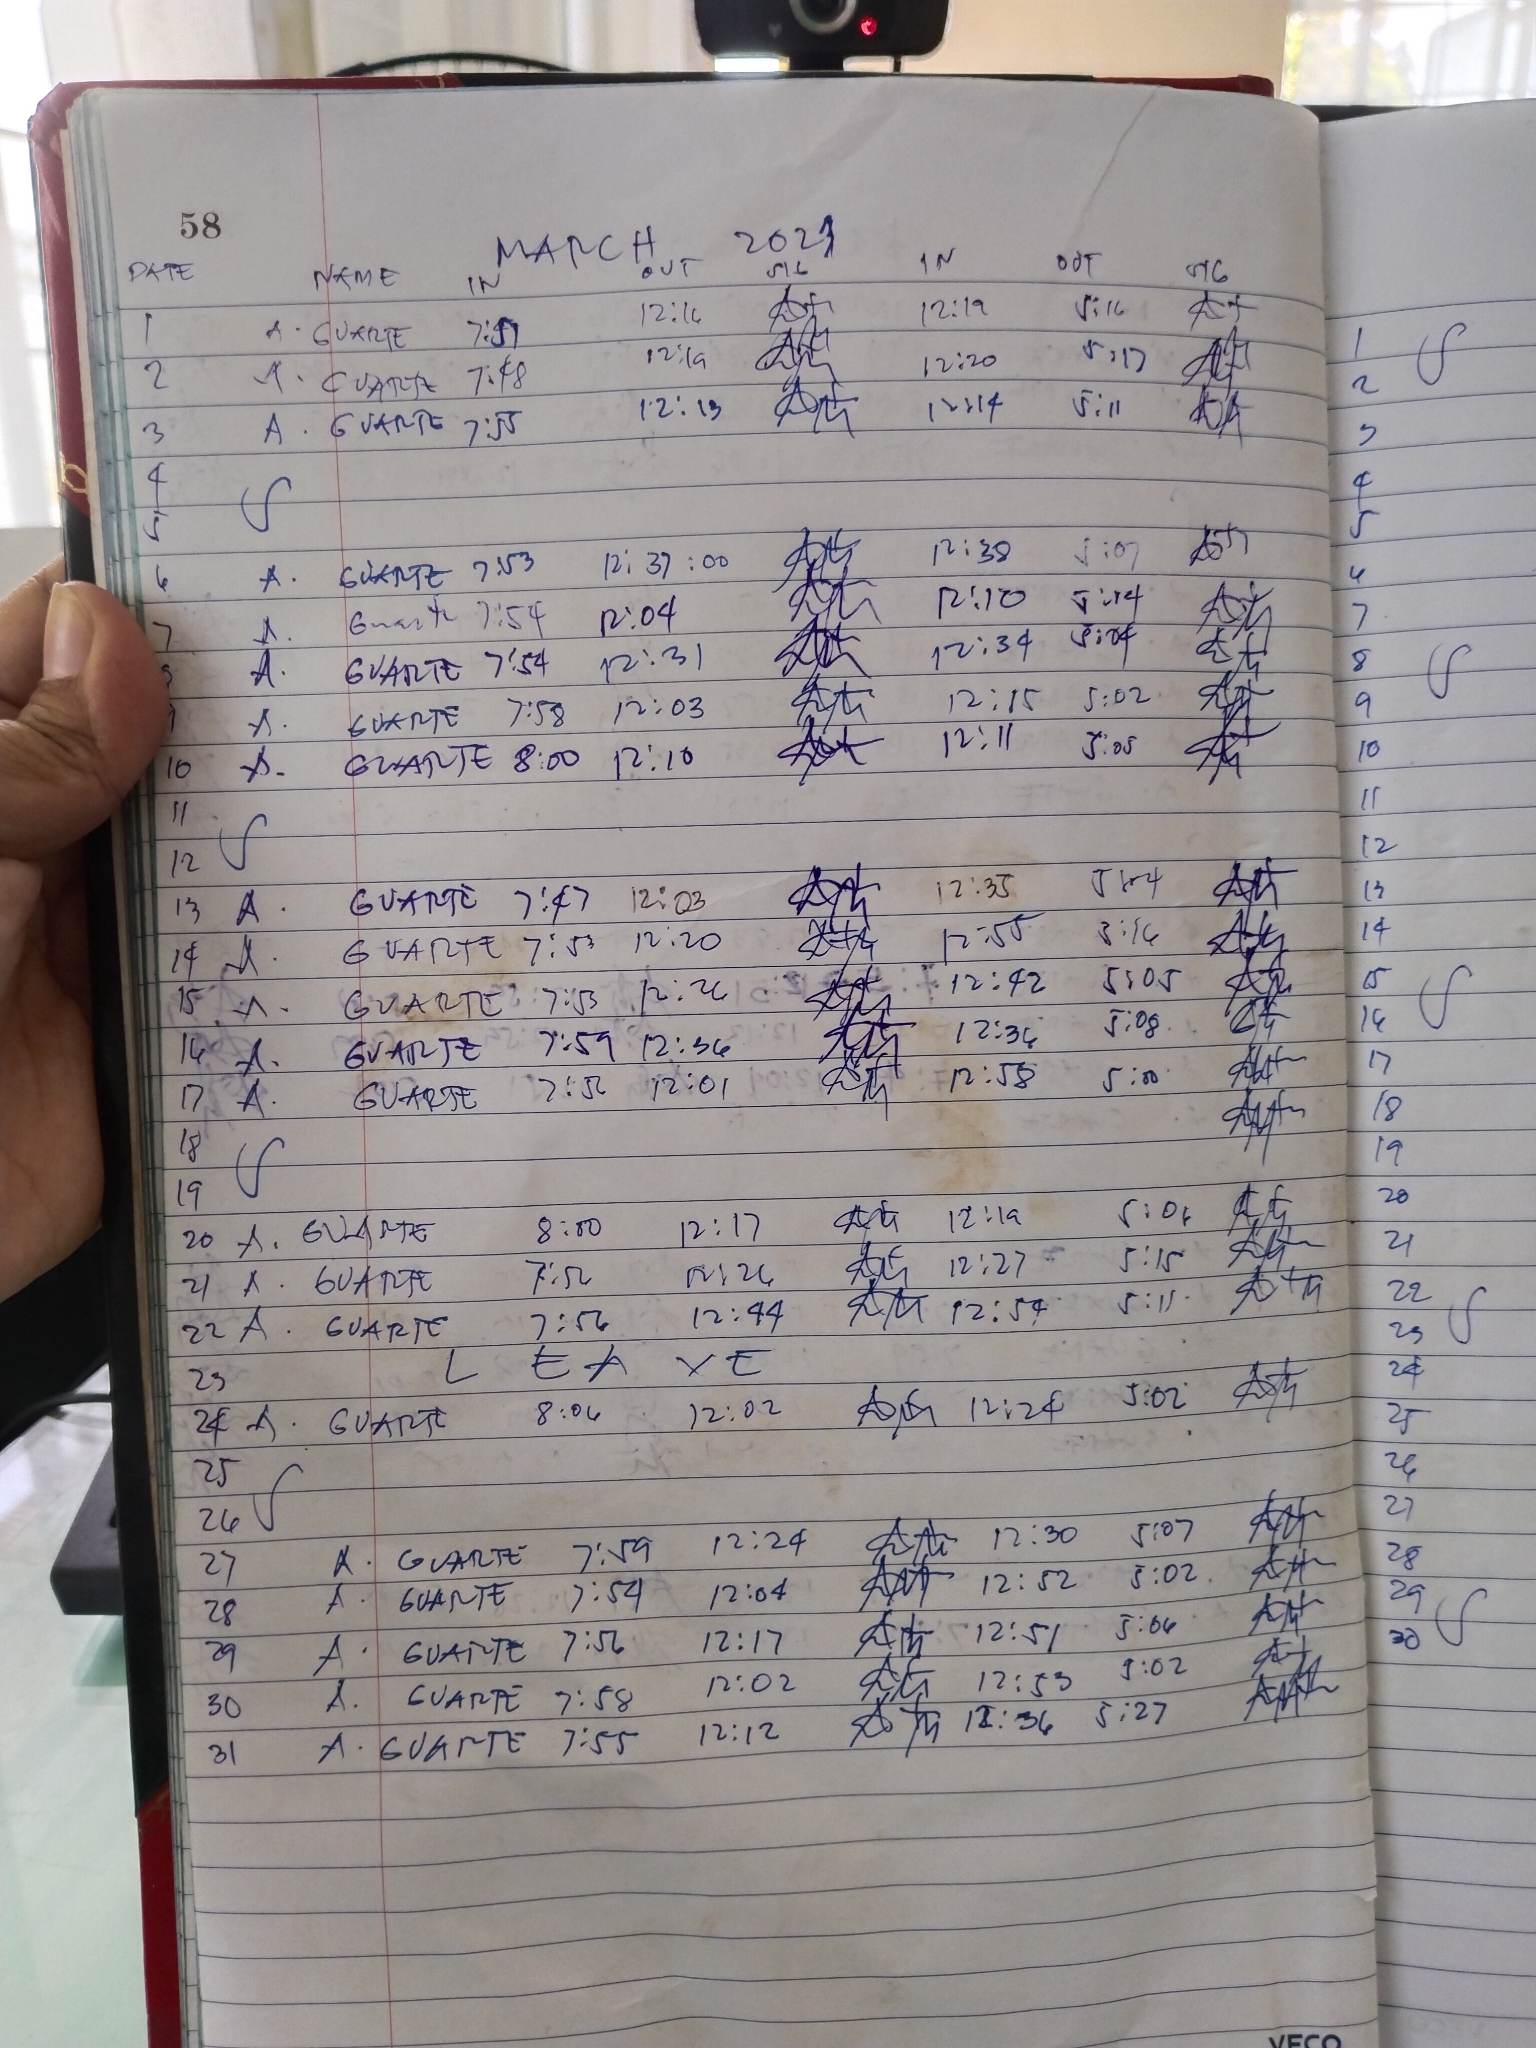 58
MARCH 2023
DATE NAME IN OUT SIG IN OUT SIG
1 A. GUARTE 7:51 12:16 12:19 5:16
2 A. GUARTE 7:48 12:19 12:20 5:17
3 A. GUARTE 7:55 12:13 12:14 5:11
4 S
5
6 A. GUARTE 7:53 12:37:00 12:38 5:07
7 A. Guarte 7:54 12:04 12:10 5:14
8 A. GUARTE 7:54 12:31 12:34 5:04
9 A. GUARTE 7:58 12:03 12:15 5:02
10 A. GUARTE 8:00 12:10 12:11 5:05
11 S
12
13 A. GUARTE 7:47 12:03 12:35 5:04
14 A. GUARTE 7:53 12:20 12:55 5:16
15 A. GUARTE 7:53 12:26 12:42 5:05
16 A. GUARTE 7:59 12:36 12:36 5:08
17 A. GUARTE 7:56 12:01 12:58 5:00
18 S
19
20 A. GUARTE 8:00 12:17 12:19 5:06
21 A. GUARTE 7:56 12:26 12:27 5:15
22 A. GUARTE 7:56 12:44 12:54 5:11
23 LEAVE
24 A. GUARTE 8:06 12:02 12:24 5:02
25 S
26
27 A. GUARTE 7:59 12:24 12:30 5:07
28 A. GUARTE 7:54 12:04 12:52 5:02
29 A. GUARTE 7:56 12:17 12:51 5:06
30 A. GUARTE 7:58 12:02 12:53 5:02
31 A. GUARTE 7:55 12:12 12:36 5:27
VECO
1 S
2
3
4
5
6
7
8 S
9
10
11
12
13
14
15 S
16
17
18
19
20
21
22 S
23
24
25
26
27
28
29 S
30